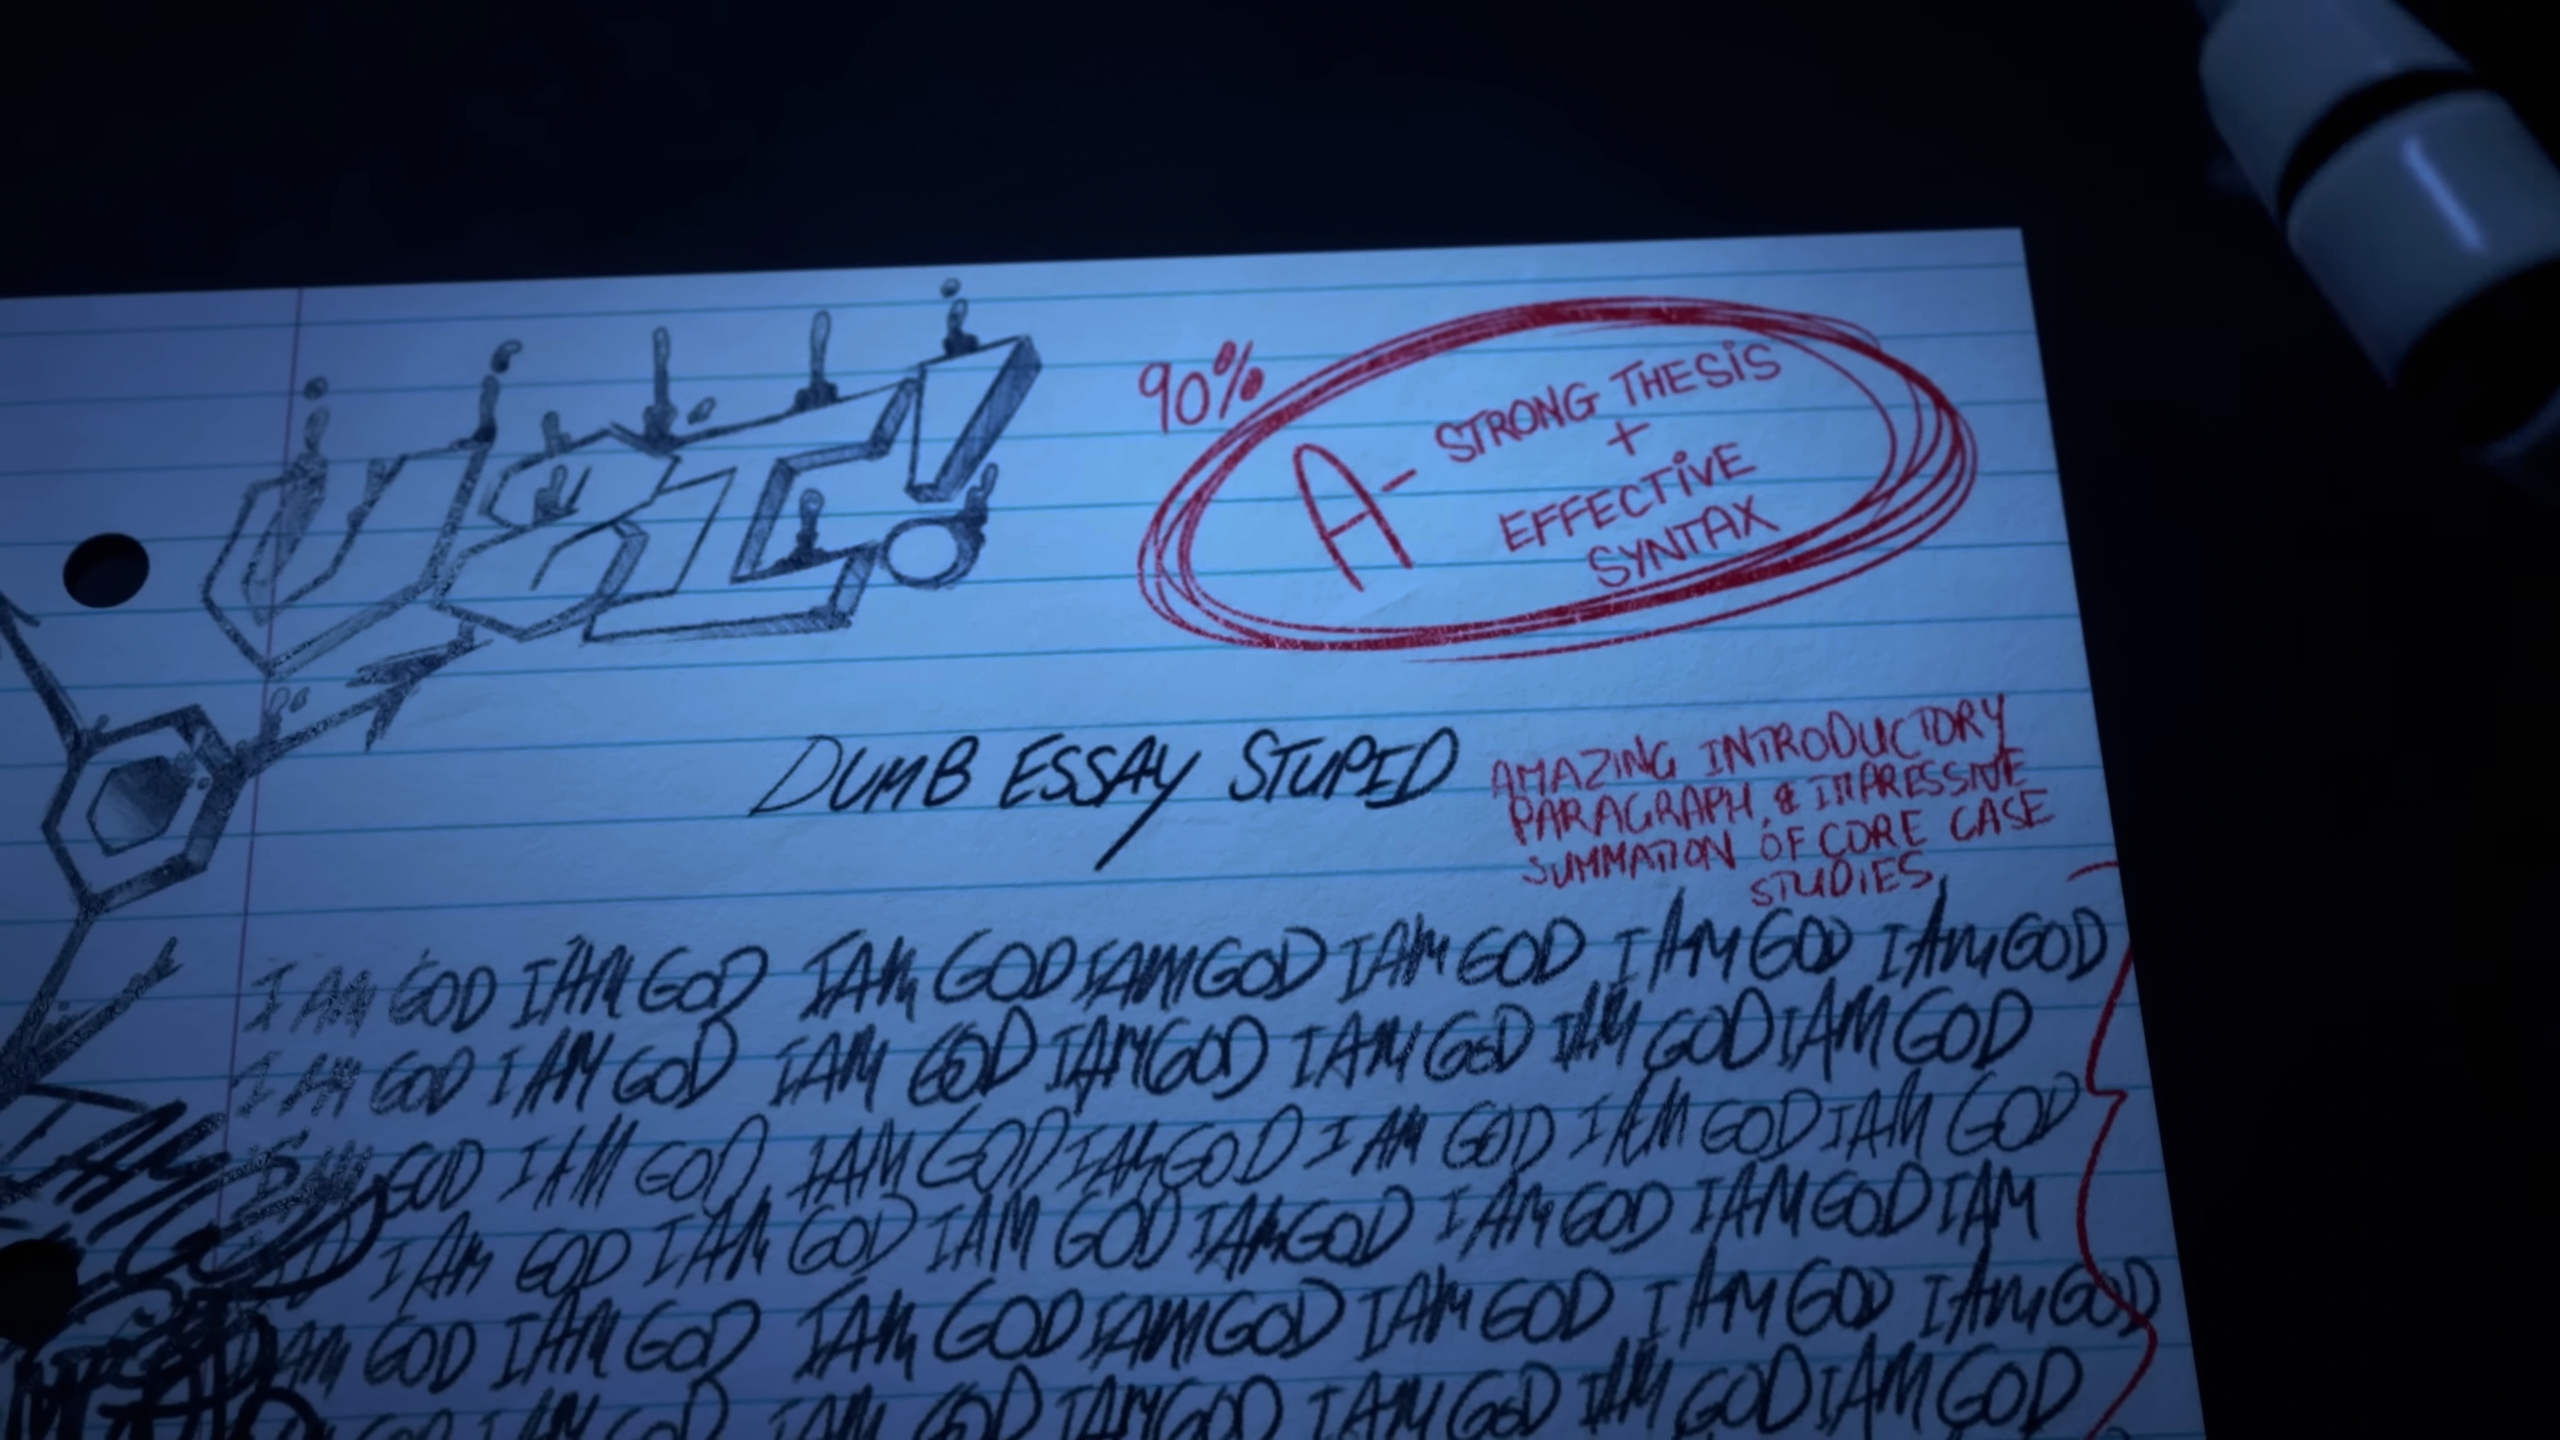 90%
A- STRONG THESIS
+
EFFECTIVE
SYNTAX
DUMB ESSAY STUPID
AMAZING INTRODUCTORY
PARAGRAPH, & IMPRESSIVE
SUMMATION OF CORE CASE
STUDIES
I AM GOD I AM GOD I AM GOD I AM GOD I AM GOD I AM GOD I AM GOD
I AM GOD I AM GOD I AM GOD I AM GOD I AM GOD I AM GOD I AM GOD
GOD I AM GOD I AM GOD I AM GOD I AM GOD I AM GOD I AM GOD
I AM GOD I AM GOD I AM GOD I AM GOD I AM GOD I AM GOD I AM
AM GOD I AM GOD I AM GOD I AM GOD I AM GOD I AM GOD I AM GOD
GOD I AM GOD I AM GOD I AM GOD I AM GOD I AM GOD I AM GOD